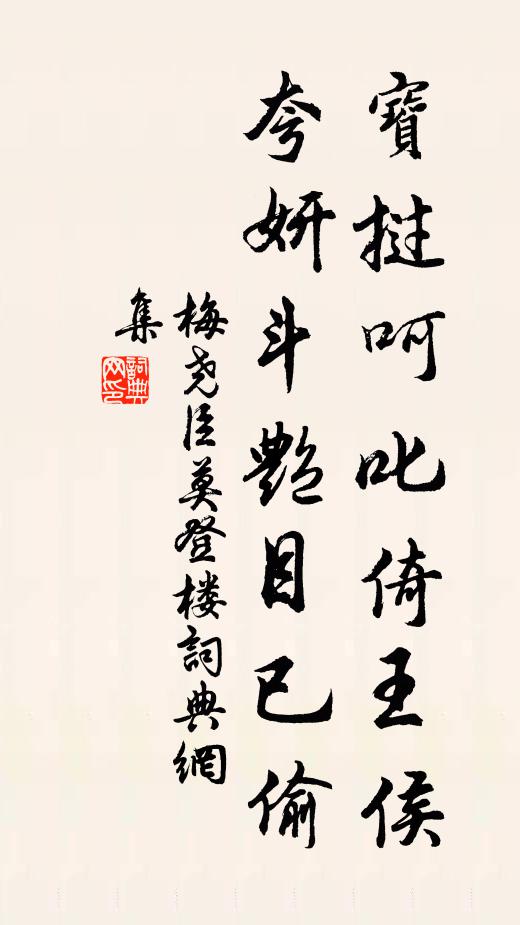 寶挝呵叱倚王侯
夸妍斗艷目已偷
梅尧臣莫登楼詞典網
集
詞典
网印